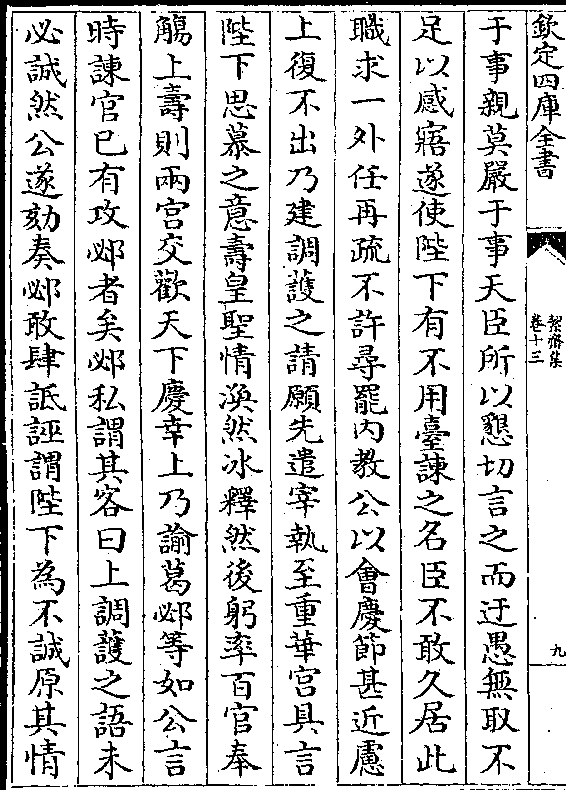 欽定四庫全書
絜齋集
卷十三
九
于事親莫嚴于事天臣所以懇切言之而迂愚無取不
足以感寤遂使陛下有不用臺諫之名臣不敢久居此
職求一外任再疏不許尋罷内教公以會慶節甚近慮
上復不出乃建調護之請願先遣宰執至重華宮具言
陛下思慕之意壽皇聖情渙然冰釋然後躬率百官奉
觴上壽則兩宮交歡天下慶幸上乃諭葛邲等如公言
時諫官已有攻邲者矣邲私謂其客曰上調護之語未
必誠然公遂劾奏邲敢肆詆誣謂陛下為不誠原其情